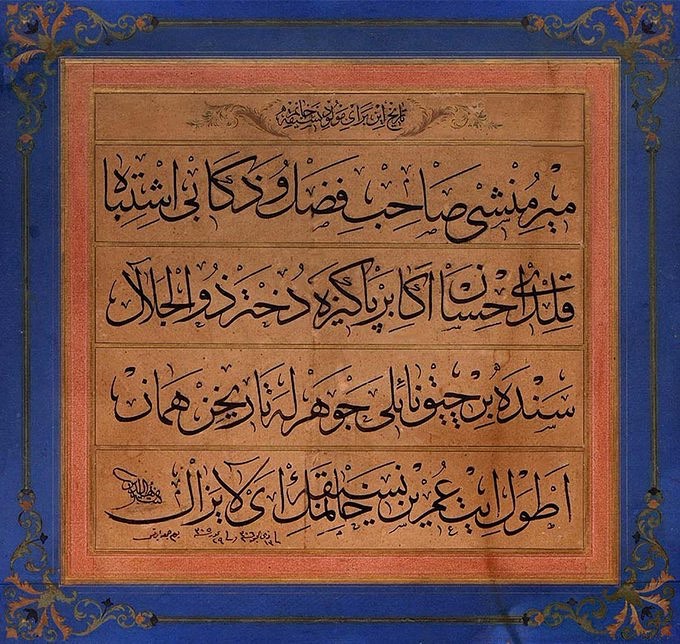 تاریخ این برای مولوده نسیقه خانم
میر منشی صاحب فضل و ذکا بی اشتباه
قلدی احسان اکا بر پاکیزه دختر ذو الجلال
سنده نائلی جوهر له تاریخن همان
اطول ایت عمرین نسیقه خانمك ای لا یزال